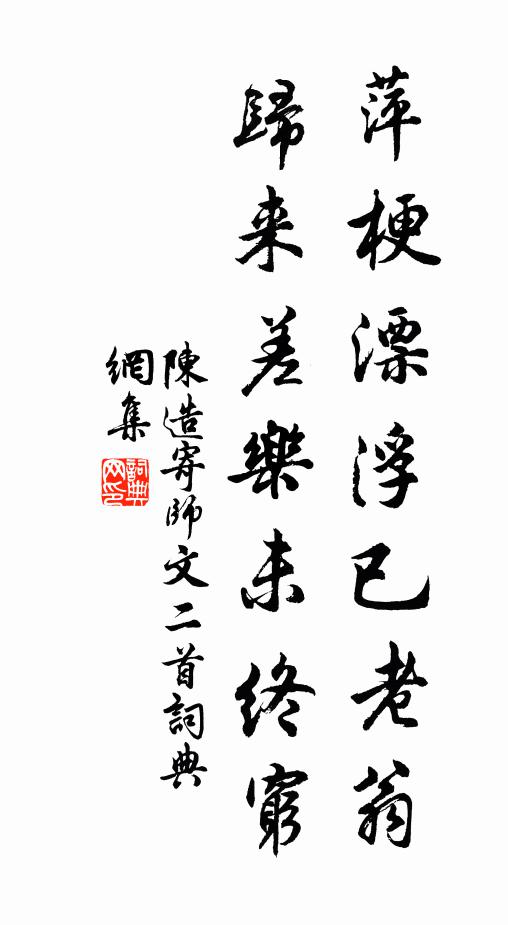 萍梗漂浮已老翁
歸来差樂未終窮
陳造寄師文二首詞典
網集
詞典網印